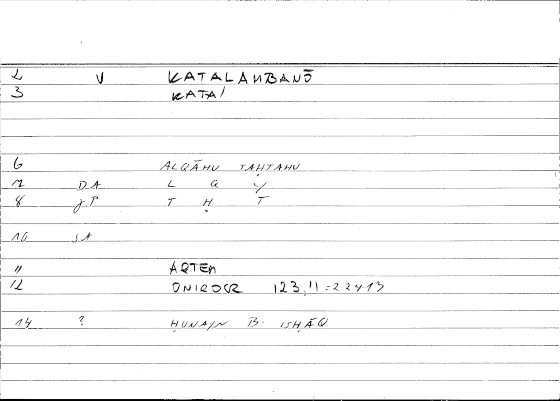 2 V KATALAMBANŌ
3 KATA/
6 ALQĀHU TAḤTAHU
7 DA L Q Y
8 gP T Ḥ T
10 SA
11 ARTEM
12 ONIROCR 123,11=22413
14 ? ḤUNAYN B. ISḤĀQ